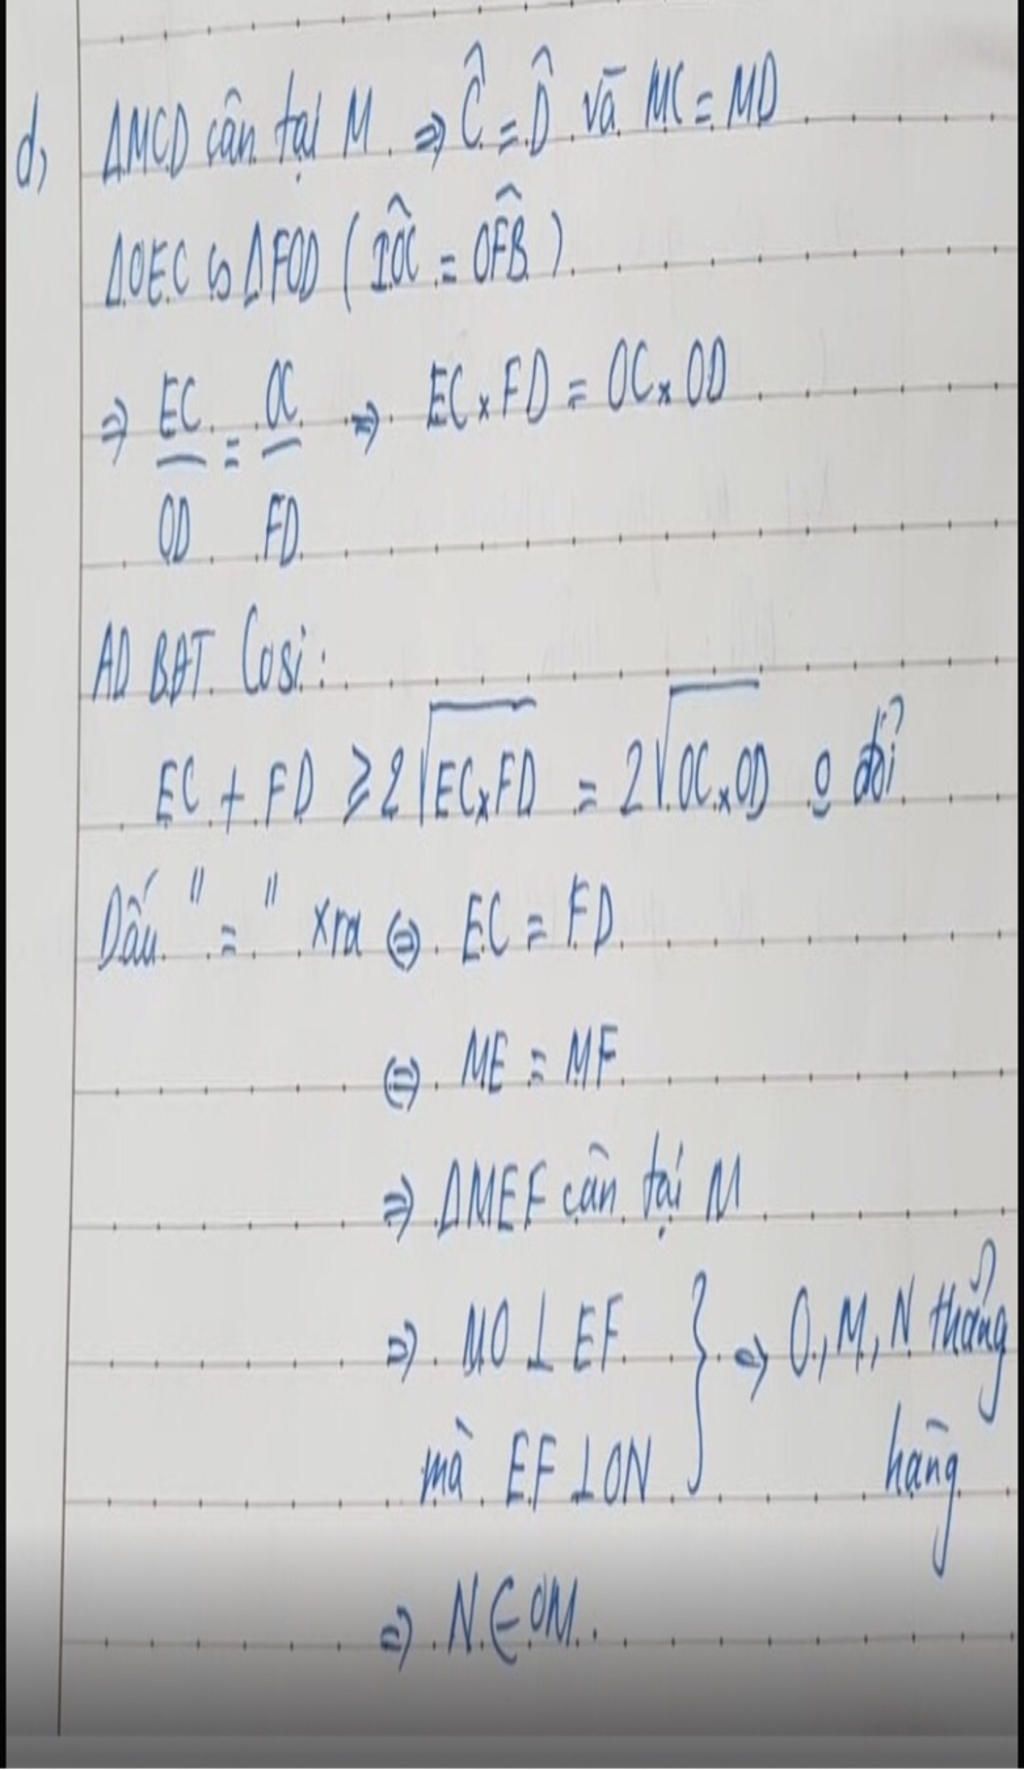 d, ΔMCD cân tại M ⇒ Ĉ = D̂ và MC = MD
ΔOEC ∽ ΔFOD ( IÔC = OF̂B )
⇒ EC/OD = OC/FD ⇒ EC x FD = OC x OD
AD BĐT Cosi :
EC + FD ≥ 2√EC x FD = 2√OC x OD o đổi
Dấu " = " xra ⇔ EC = FD
⇔ ME = MF
⇒ ΔMEF cân tại M
⇒ MO ⊥ EF } ⇒ O, M, N thẳng
mà EF ⊥ ON hàng
⇒ N ∈ OM.